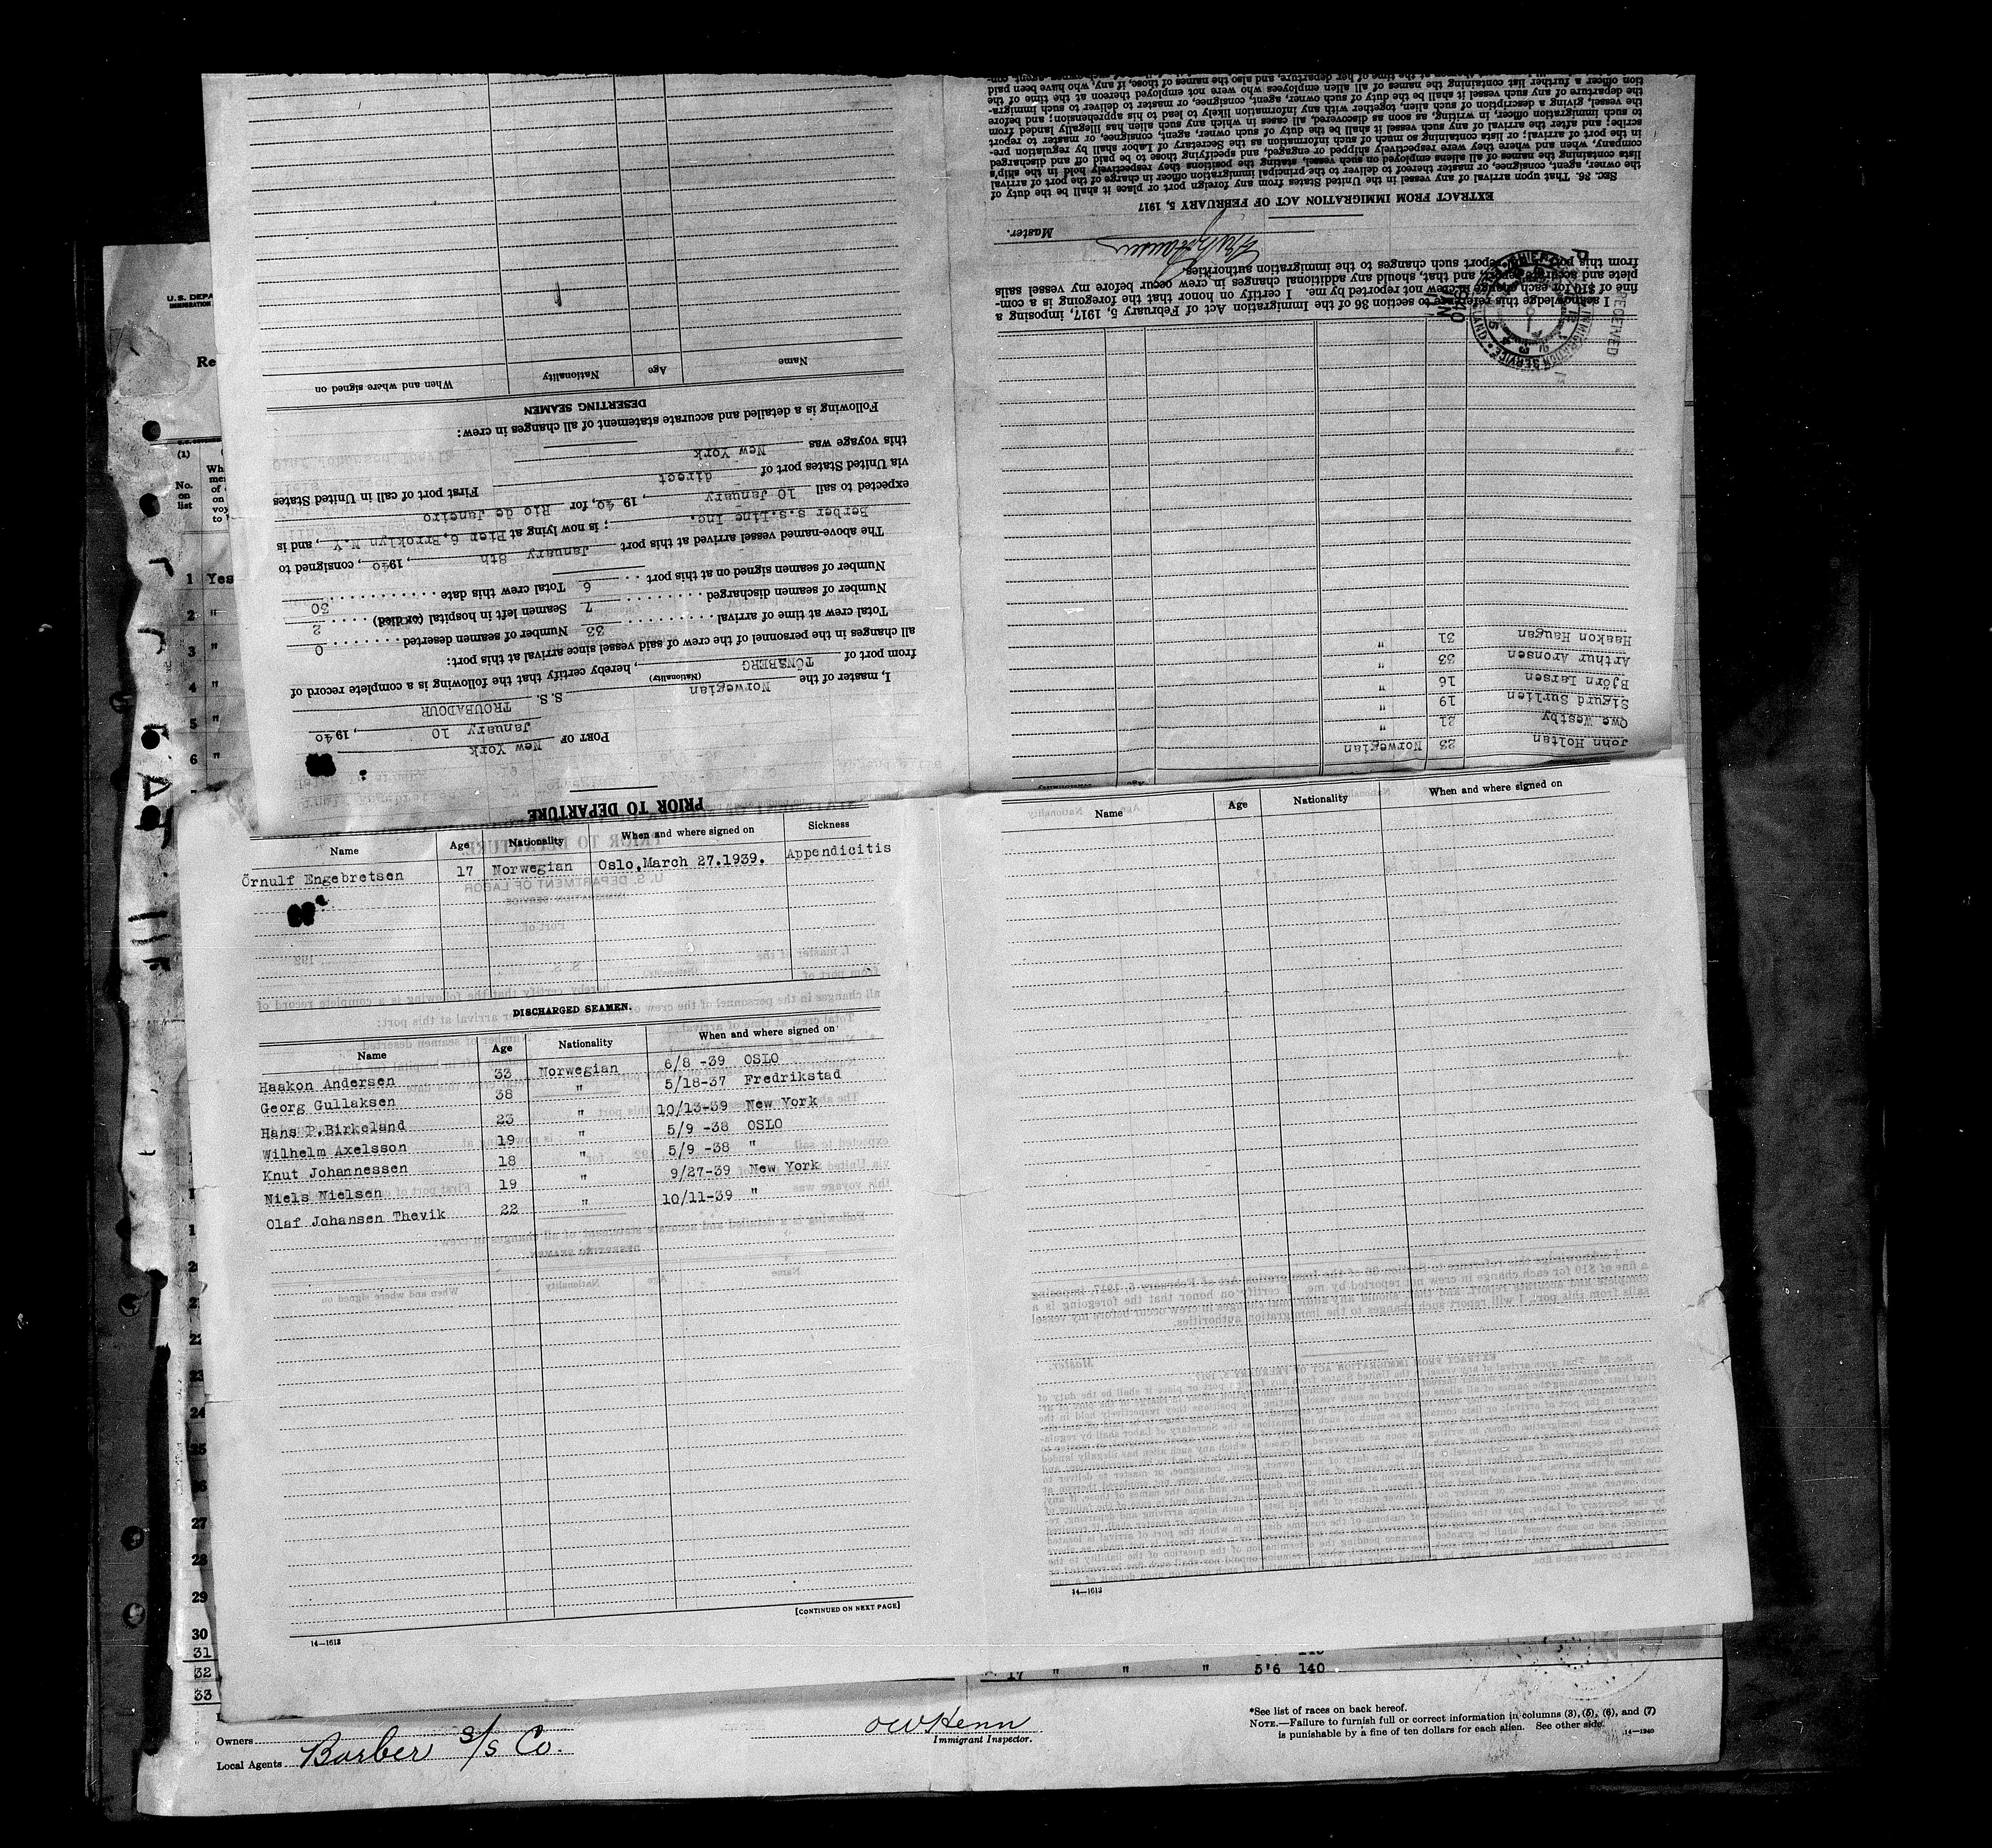 PRIOR TO DEPARTURE
PORT OF New York
January 10, 1940
I, master of the Norwegian S. S. TROUBADOUR
(Nationality)
from port of TÖNSBERG, hereby certify that the following is a complete record of
all changes in the personnel of the crew of said vessel since arrival at this port:
Total crew at time of arrival 33 Number of seamen deserted 0
Number of seamen discharged 7 Seamen left in hospital (or died) 2
Number of seamen signed on at this port 6 Total crew this date 30
The above-named vessel arrived at this port January 8th, 1940, consigned to
Berber s.s.Line Inc.; is now lying at Pier 6, Brroklyn N.Y, and is
expected to sail 10 January, 1940, for Rio de Janeiro
via United States port of direct First port of call in United States
this voyage was New York
Following is a detailed and accurate statement of all changes in crew:
DESERTING SEAMEN
Name Age Nationality When and where signed on
John Holtan 23 Norwegian
Owe Westby 21 "
Sigurd Surlien 19 "
Björn Larsen 16 "
Arthur Aronsen 33 "
Haakon Haugan 31 "
I acknowledge this reference to section 36 of the Immigration Act of February 5, 1917, imposing a
fine of $10 for each change in crew not reported by me. I certify on honor that the foregoing is a com-
plete and accurate report, and that, should any additional changes in crew occur before my vessel sails
from this port, I will report such changes to the immigration authorities.
Master.
RECEIVED
1940
EXTRACT FROM IMMIGRATION ACT OF FEBRUARY 5, 1917
SEC. 36. That upon arrival of any vessel in the United States from any foreign port or place it shall be the duty of
the owner, agent, consignee, or master thereof to deliver to the principal immigration officer in charge of the port of arrival
lists containing the names of all aliens employed on such vessel, stating the positions they respectively hold in the ship's
company, when and where they were respectively shipped or engaged, and specifying those to be paid off and discharged
in the port of arrival; or lists containing so much of such information as the Secretary of Labor shall by regulation pre-
scribe; and after the arrival of any such vessel it shall be the duty of such owner, agent, consignee, or master to report
to such immigration officer, in writing, as soon as discovered, all cases in which any such alien has illegally landed from
the vessel, giving a description of such alien, together with any information likely to lead to his apprehension; and before
the departure of any such vessel it shall be the duty of such owner, agent, consignee, or master to deliver to such immigra-
tion officer a further list containing the names of all alien employees who were not employed thereon at the time of the
Name Age Nationality When and where signed on Sickness
Örnulf Engebretsen 17 Norwegian Oslo,March 27.1939. Appendicitis
DISCHARGED SEAMEN.
Name Age Nationality When and where signed on
Haakon Andersen 33 Norwegian 6/8 -39 OSLO
Georg Gullaksen 38 " 5/18-37 Fredrikstad
Hans P.Birkeland 23 " 10/13-39 New York
Wilhelm Axelsson 19 " 5/9 -38 OSLO
Knut Johannessen 18 " 5/9 -38 "
Niels Nielsen 19 " 9/27-39 New York
Olaf Johansen Thevik 22 " 10/11-39 "
[CONTINUED ON NEXT PAGE]
14—1613
Name Age Nationality When and where signed on
14—1613
U.S. DEPA
(1)
No.
on
list
1 Yes
2 "
3 "
4 "
5 "
6 "
22
23
24
25
26
27
28
29
30
31
32
33
17 " " " 5'6 140
Owners
Local Agents Barber S/S Co.
Immigrant Inspector.
*See list of races on back hereof.
NOTE.—Failure to furnish full or correct information in columns (3), (5), (6), and (7)
is punishable by a fine of ten dollars for each alien. See other side.
14—1240